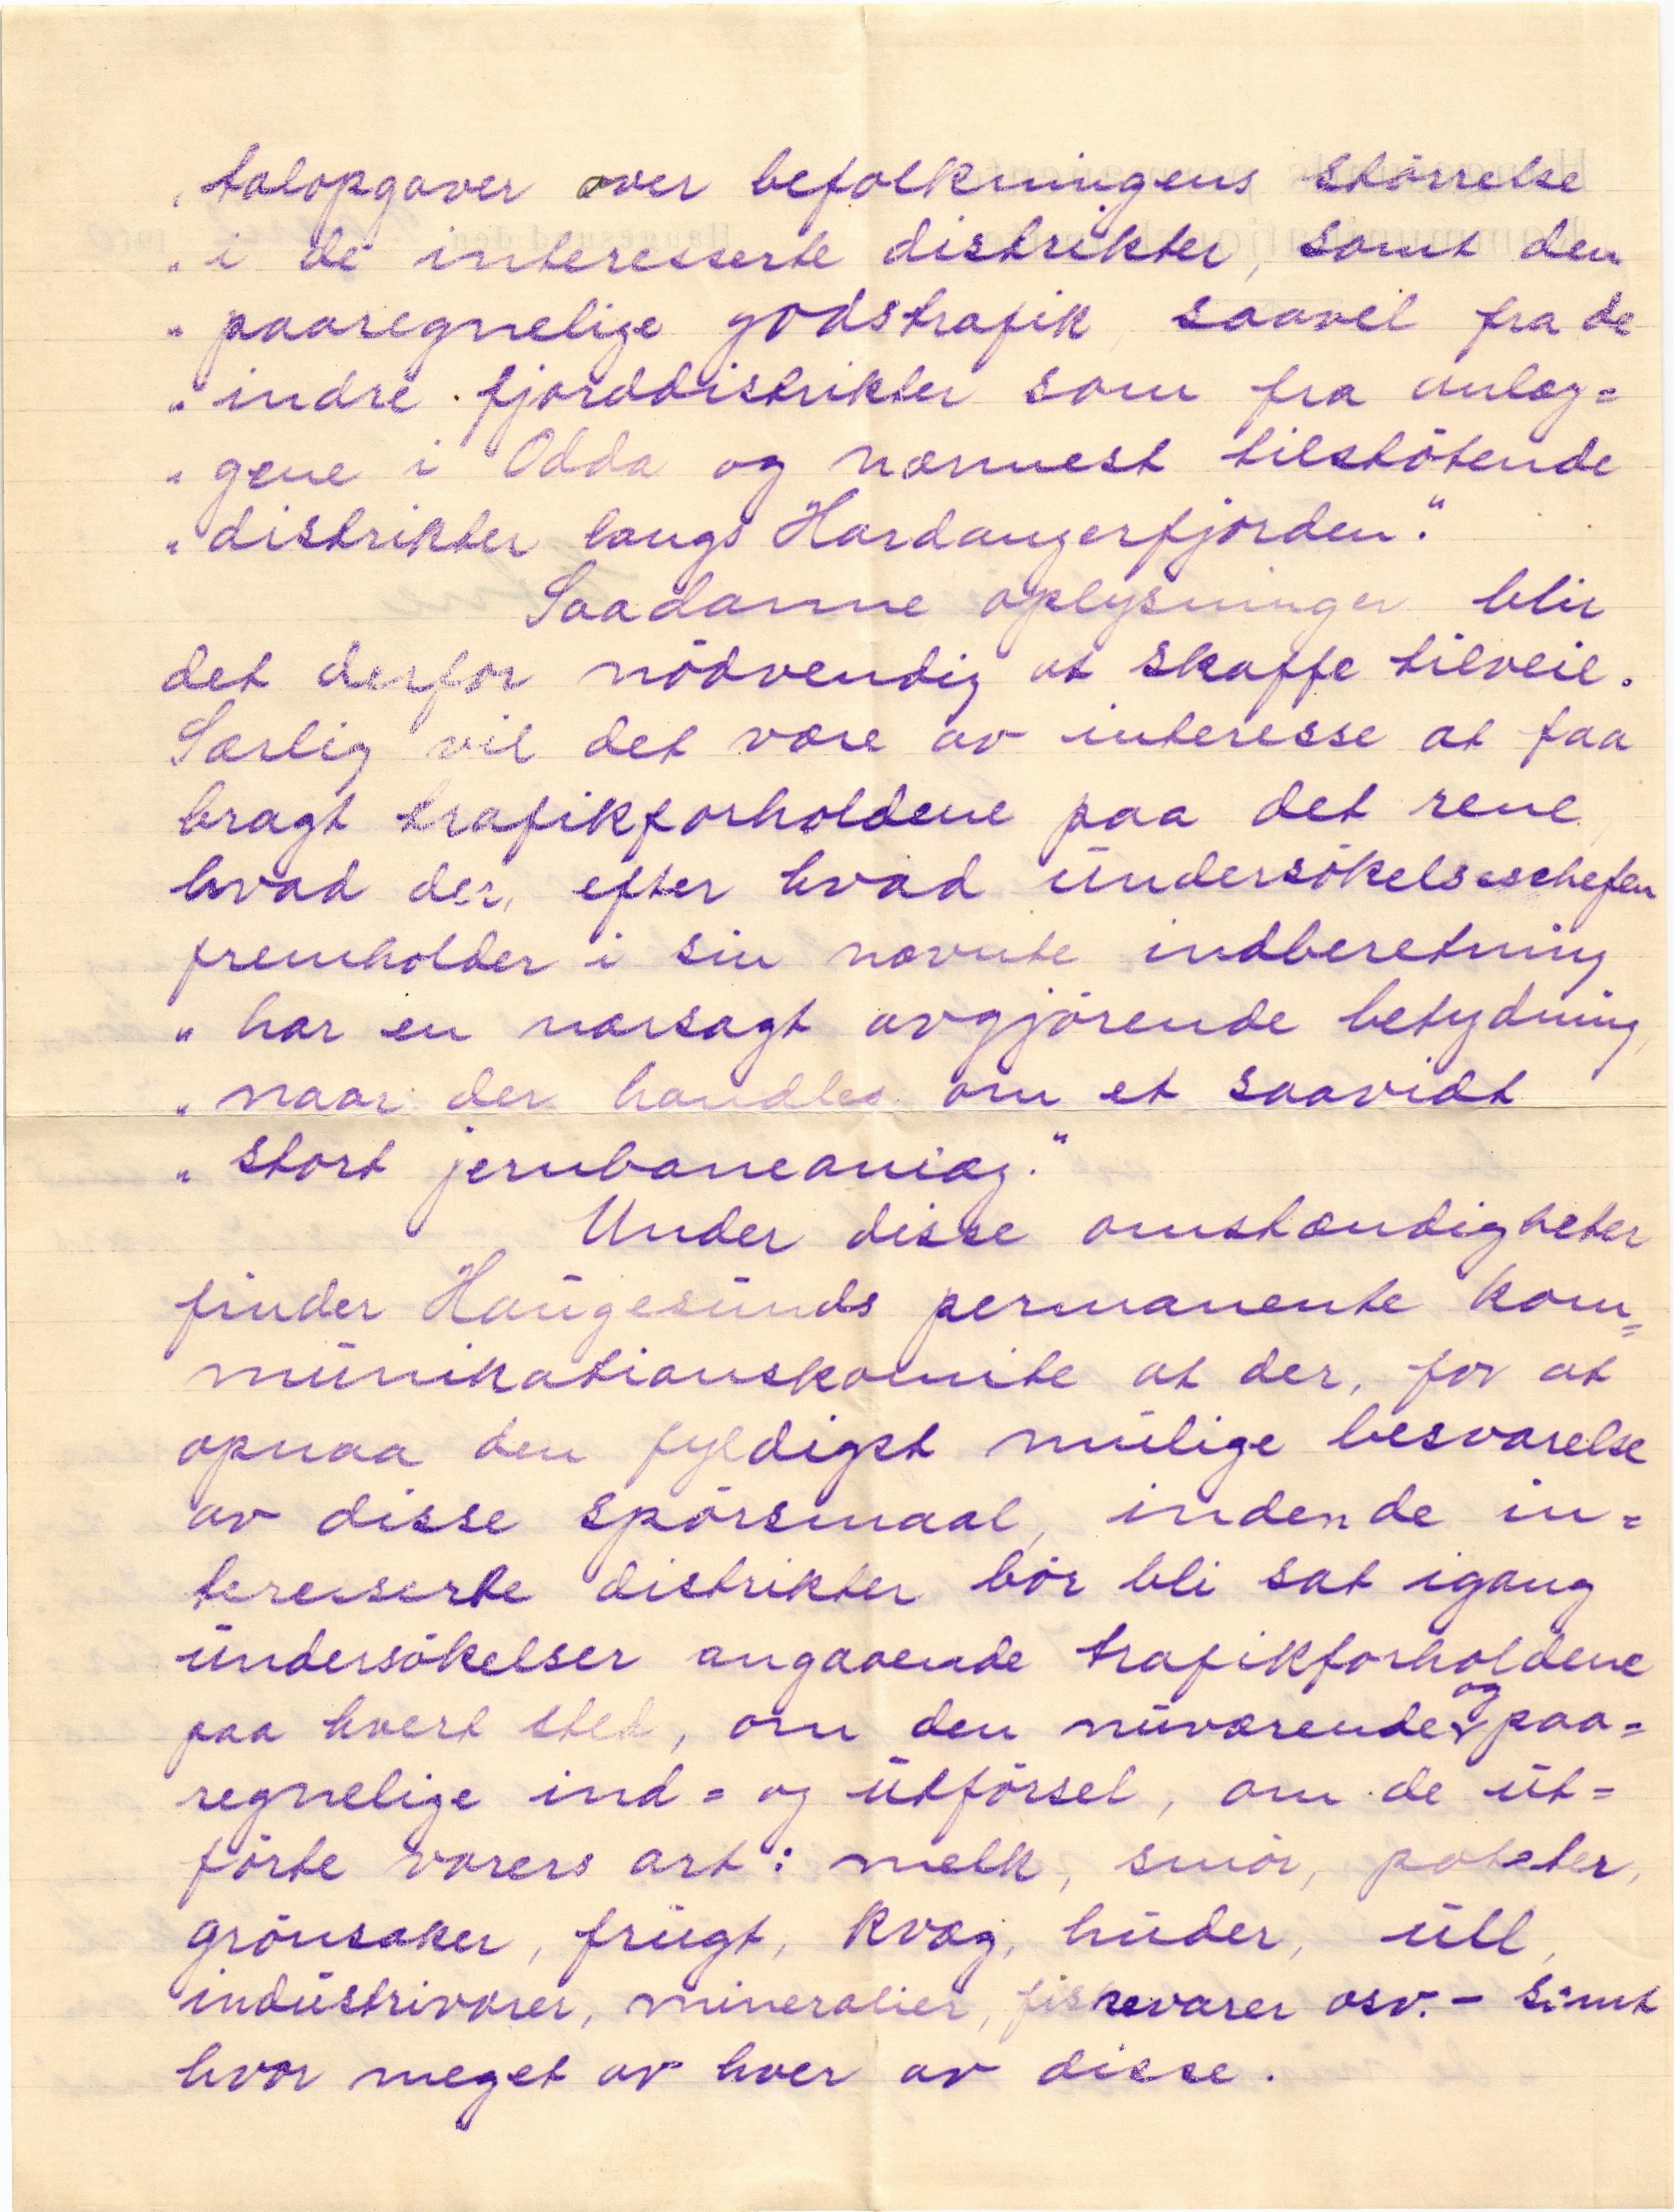 „talopgaver over befolkningens störrelse
„i de interesserte distrikter, samt den
„paaregnelige godstrafik, saavel fra de
„indre fjorddistrikter som fra anlæg=
„gene i Odda og nærmest tilstötende
„distrikter langs Hardangerfjorden."
Saadanne oplysninger blir
det derfor nödvendig at skaffe tilveie.
Særlig vil det være av interesse at faa
bragt trafikforholdene paa det rene,
hvad der, efter hvad undersökelseschefen
fremholder i sin nævnte indberetning
„har en nærsagt avgjörende betydning,
„naar der handles om et saavidt
„stort jernbaneanlæg."
Under disse omstændigheter
finder Haugesunds permanente kom=
munikationskomite at der, for at
opnaa den fyldigst mulige besvarelse
av disse spörsmaal, inden de in=
teresserte distrikter bör bli sat igang
undersökelser angaaende trafikforholdene
paa hvert sted, om den nuværende og paa=
regnelige ind= og utförsel, om de ut=
förte varers art: melk, smör, poteter,
grönsaker, frugt, kvæg, huder, ull,
industrivarer, mineralier, fiskevarer osv. – samt
hvor meget av hver av disse.